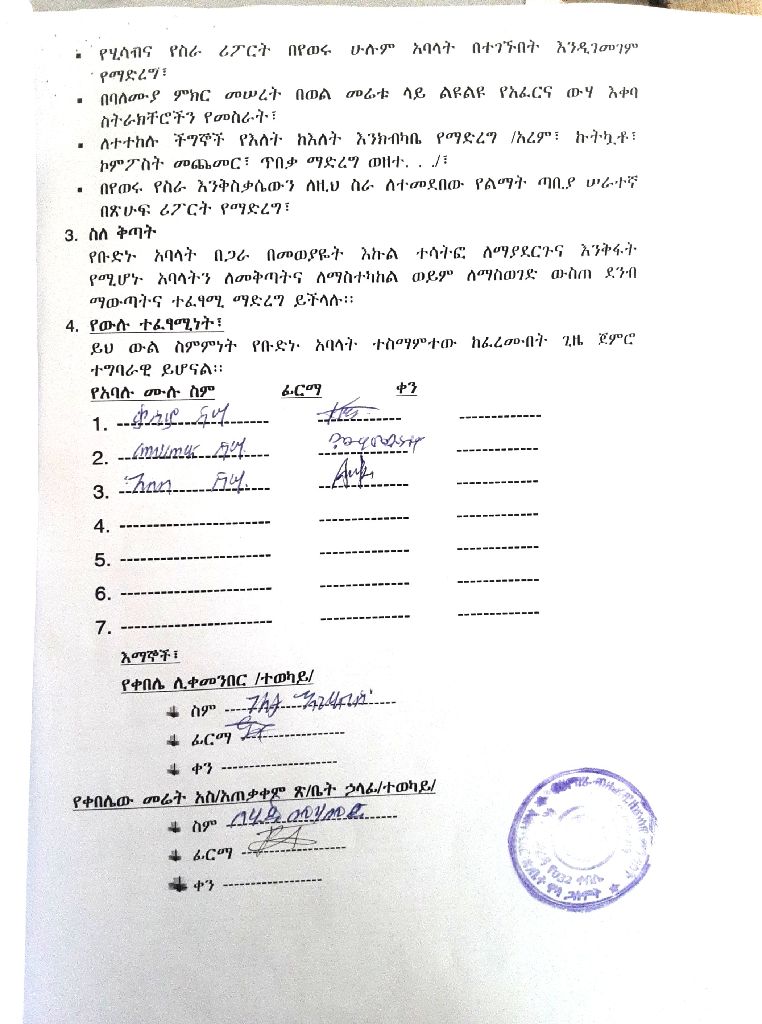 ▪ የሂሳብና የስራ ሪፖርት በየወሩ ሁሉም አባላት በተገኙበት እንዲገመገም
የማድረግ፣
▪ በባለሙያ ምክር መሠረት በወል መሬቱ ላይ ልዩልዩ የአፈርና ውሃ እቀባ
ስትራክቸሮችን የመስራት፣
▪ ለተተከሉ ችግኞች የእለት ከእለት እንክብካቤ የማድረግ /አረም፣ ኩትኳቶ፣
ኮምፖስት መጨመር፣ ጥበቃ ማድረግ ወዘተ. . ./፣
▪ በየወሩ የስራ እንቅስቃሴውን ለዚህ ስራ ለተመደበው የልማት ጣቢያ ሠራተኛ
በጽሁፍ ሪፖርት የማድረግ፣
3. ስለ ቅጣት
የቡድኑ አባላት በጋራ በመወያዬት እኩል ተሳትፎ ለማያደርጉና እንቅፋት
የሚሆኑ አባላትን ለመቅጣትና ለማስተካከል ወይም ለማስወገድ ውስጠ ደንብ
ማውጣትና ተፈፃሚ ማድረግ ይችላሉ፡፡
4. የውሉ ተፈፃሚነት፣
ይህ ውል ስምምነት የቡድኑ አባላት ተስማምተው ከፈረሙበት ጊዜ ጀምሮ
ተግባራዊ ይሆናል፡፡
የአባሉ ሙሉ ስም ፊርማ ቀን
1.
2.
3.
4.
5.
6.
7.
እማኞች፣
የቀበሌ ሊቀመንበር /ተወካይ/
ስም
ፊርማ
ቀን
የቀበሌው መሬት አስ/አጠቃቀም ጽ/ቤት ኃላፊ/ተወካይ/
ስም
ፊርማ
ቀን